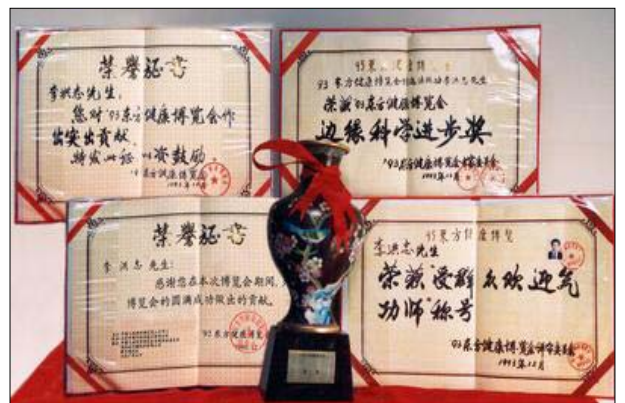 荣誉证书
李洪志先生:
您对'93东方健康博览会作
出突出贡献.
特发此证 以资鼓励
1993年12月
93东方健康博览
93东方健康博览会
李洪志先生
荣获'93东方健康博览会
边缘科学进步奖
'93东方健康博览会评审委员会
1993年12月
荣誉证书
李洪志先生:
感谢您在本次博览会期间,
博览会的圆满成功做出的贡献。
'92东方健康博览会
93东方健康博览
李洪志先生
荣获"受群众欢迎气
功师"称号
'93东方健康博览会评审委员会
1993年12月